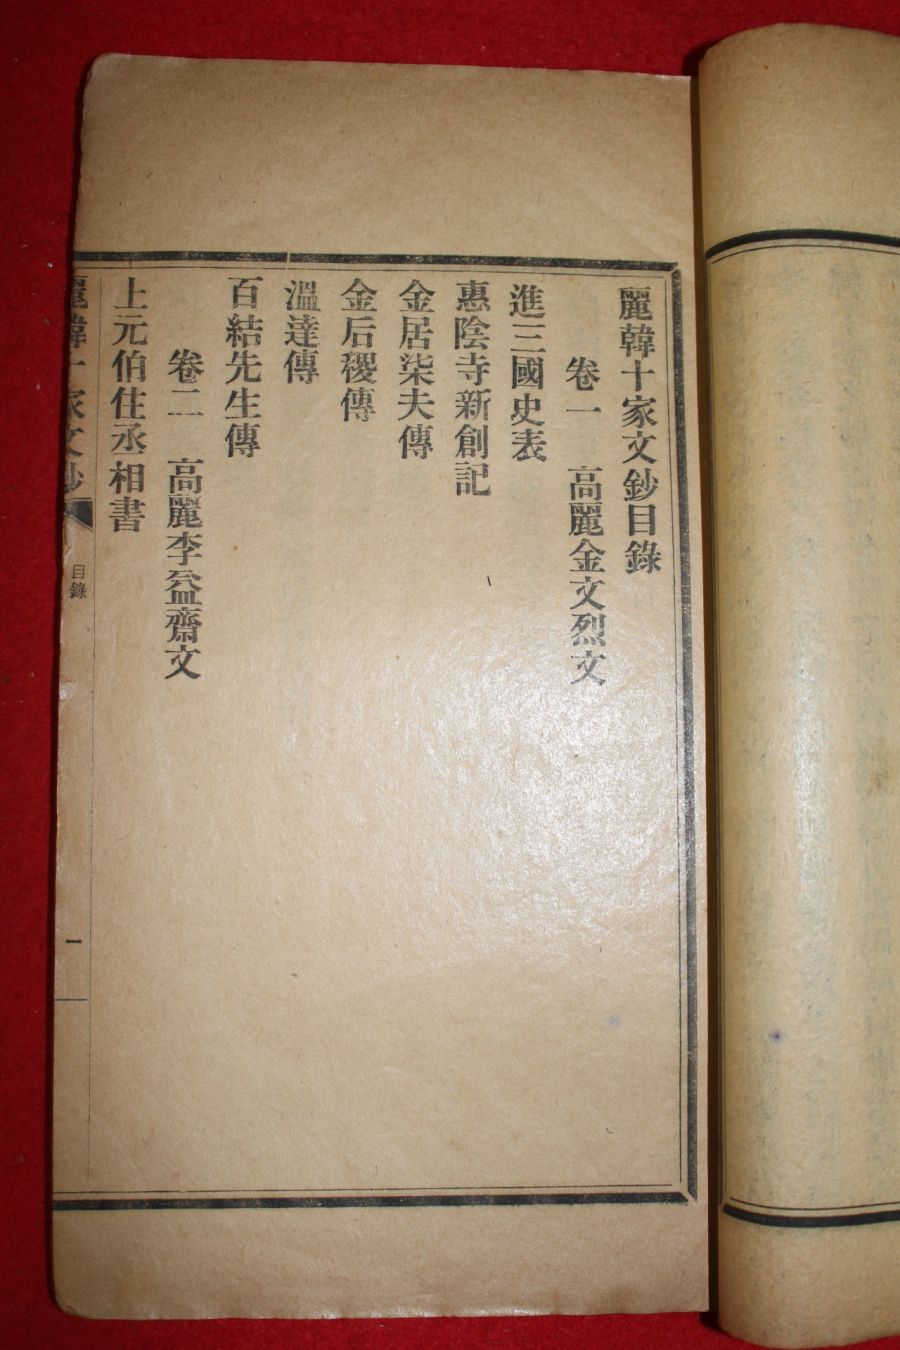 麗韓十家文鈔目錄
卷一 高麗金文烈文
進三國史表
惠陰寺新創記
金居柒夫傳
金后稷傳
溫達傳
百結先生傳
卷二 高麗李益齋文
上元伯住丞相書
麗韓十家文鈔
目錄
一